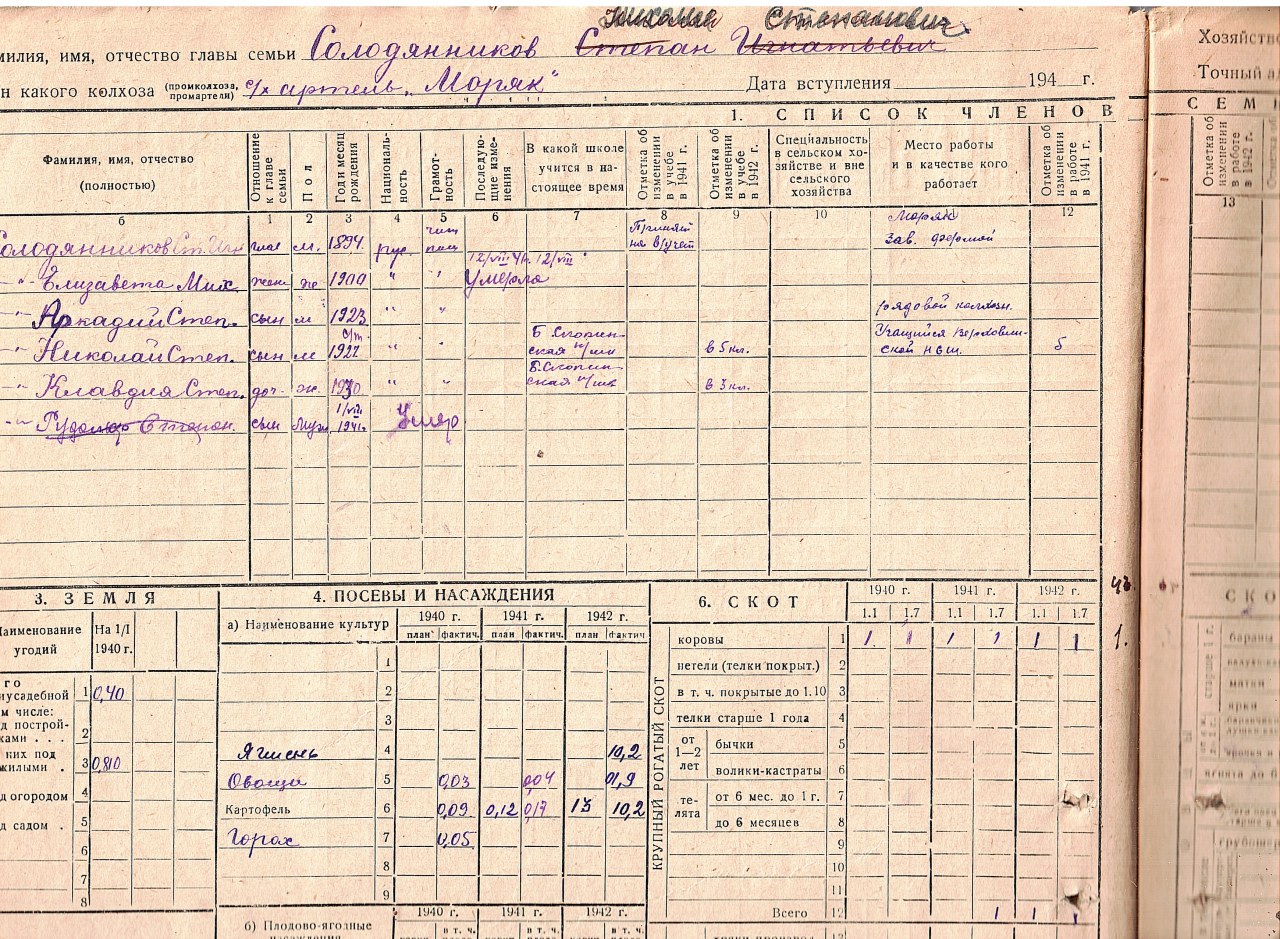 Николай Степанович
милия, имя, отчество главы семьи Солодянников Степан Игнатьевич
н какого колхоза (промколхоза, промартели) с/х артель „Моряк" Дата вступления 194 г.
Хозяйств
Точный а
1. СПИСОК ЧЛЕНОВ
СЕМ
Фамилия, имя, отчество (полностью)
Отношение к главе семьи
Пол
Год и месяц рождения
Националь-
ность
Грамот-
ность
Последую-
щие изме-
нения
В какой школе
учится в на-
стоящее время
Отметка об изменении в учебе в 1941 г.
Отметка об изменении в учебе в 1942 г.
Специальность
в сельском хо-
зяйстве и вне
сельского
хозяйства
Место работы
и в качестве кого
работает
Отметка об изменении в работе в 1941 г.
Отметка об изменении в работе в 1942 г.
б 1 2 3 4 5 6 7 8 9 10 11 12 13
олодянников Ст. Игн глав м. 1894 рус. Принят на в/учет Моряк Зав. фермой
-"- Елизавета Мих. жена ж 1900 " " 12/VIII 12/VIII Умерла
-"- Аркадий Степ. сын м 1923 " " рядовой колхозн.
-"- Николай Степ. сын м 1927 " " в 5 кл. Учащийся НСШ. 5
-"- Клавдия Степ. доч. ж. 1930 " " в 3 кл.
-"- Степан. сын муж 1/VIII 1941г. Умер
3. ЗЕМЛЯ
аименование
угодий
На 1/I
1940 г.
го
иусадебной 1 0,40
м числе:
д построй-
ками . . . 2
ких под
жилыми . 3 0,010
4
д огородом
5
д садом .
6
7
8
4. ПОСЕВЫ И НАСАЖДЕНИЯ
а) Наименование культур
1940 г. 1941 г. 1942 г.
план фактич. план фактич. план фактич.
1
2
3
Ячмень 4 10,2
Овощи 5 0,03 0,04 01,9
Картофель 6 0,09 0,12 0,17 13 10,2
Горох 7 0,05
8
9
б) Плодово-ягодные
насаждения
1940 г. 1941 г. 1942 г.
в т. ч. в т. ч. в т. ч.
6. СКОТ
1940 г. 1941 г. 1942 г.
1.1 1.7 1.1 1.7 1.1 1.7
43
КРУПНЫЙ РОГАТЫЙ СКОТ
коровы 1 1 1 1 1 1 1 1.
нетели (телки покрыт.) 2
в т. ч. покрытые до 1.10 3
телки старше 1 года 4
от
1—2
лет
бычки 5
волики-кастраты 6
те-
лята
от 6 мес. до 1 г. 7
до 6 месяцев 8
9
10
11
Всего 12 1 1 1
СКО
бараны
матки
ярки
ягнята до 6
грубошер